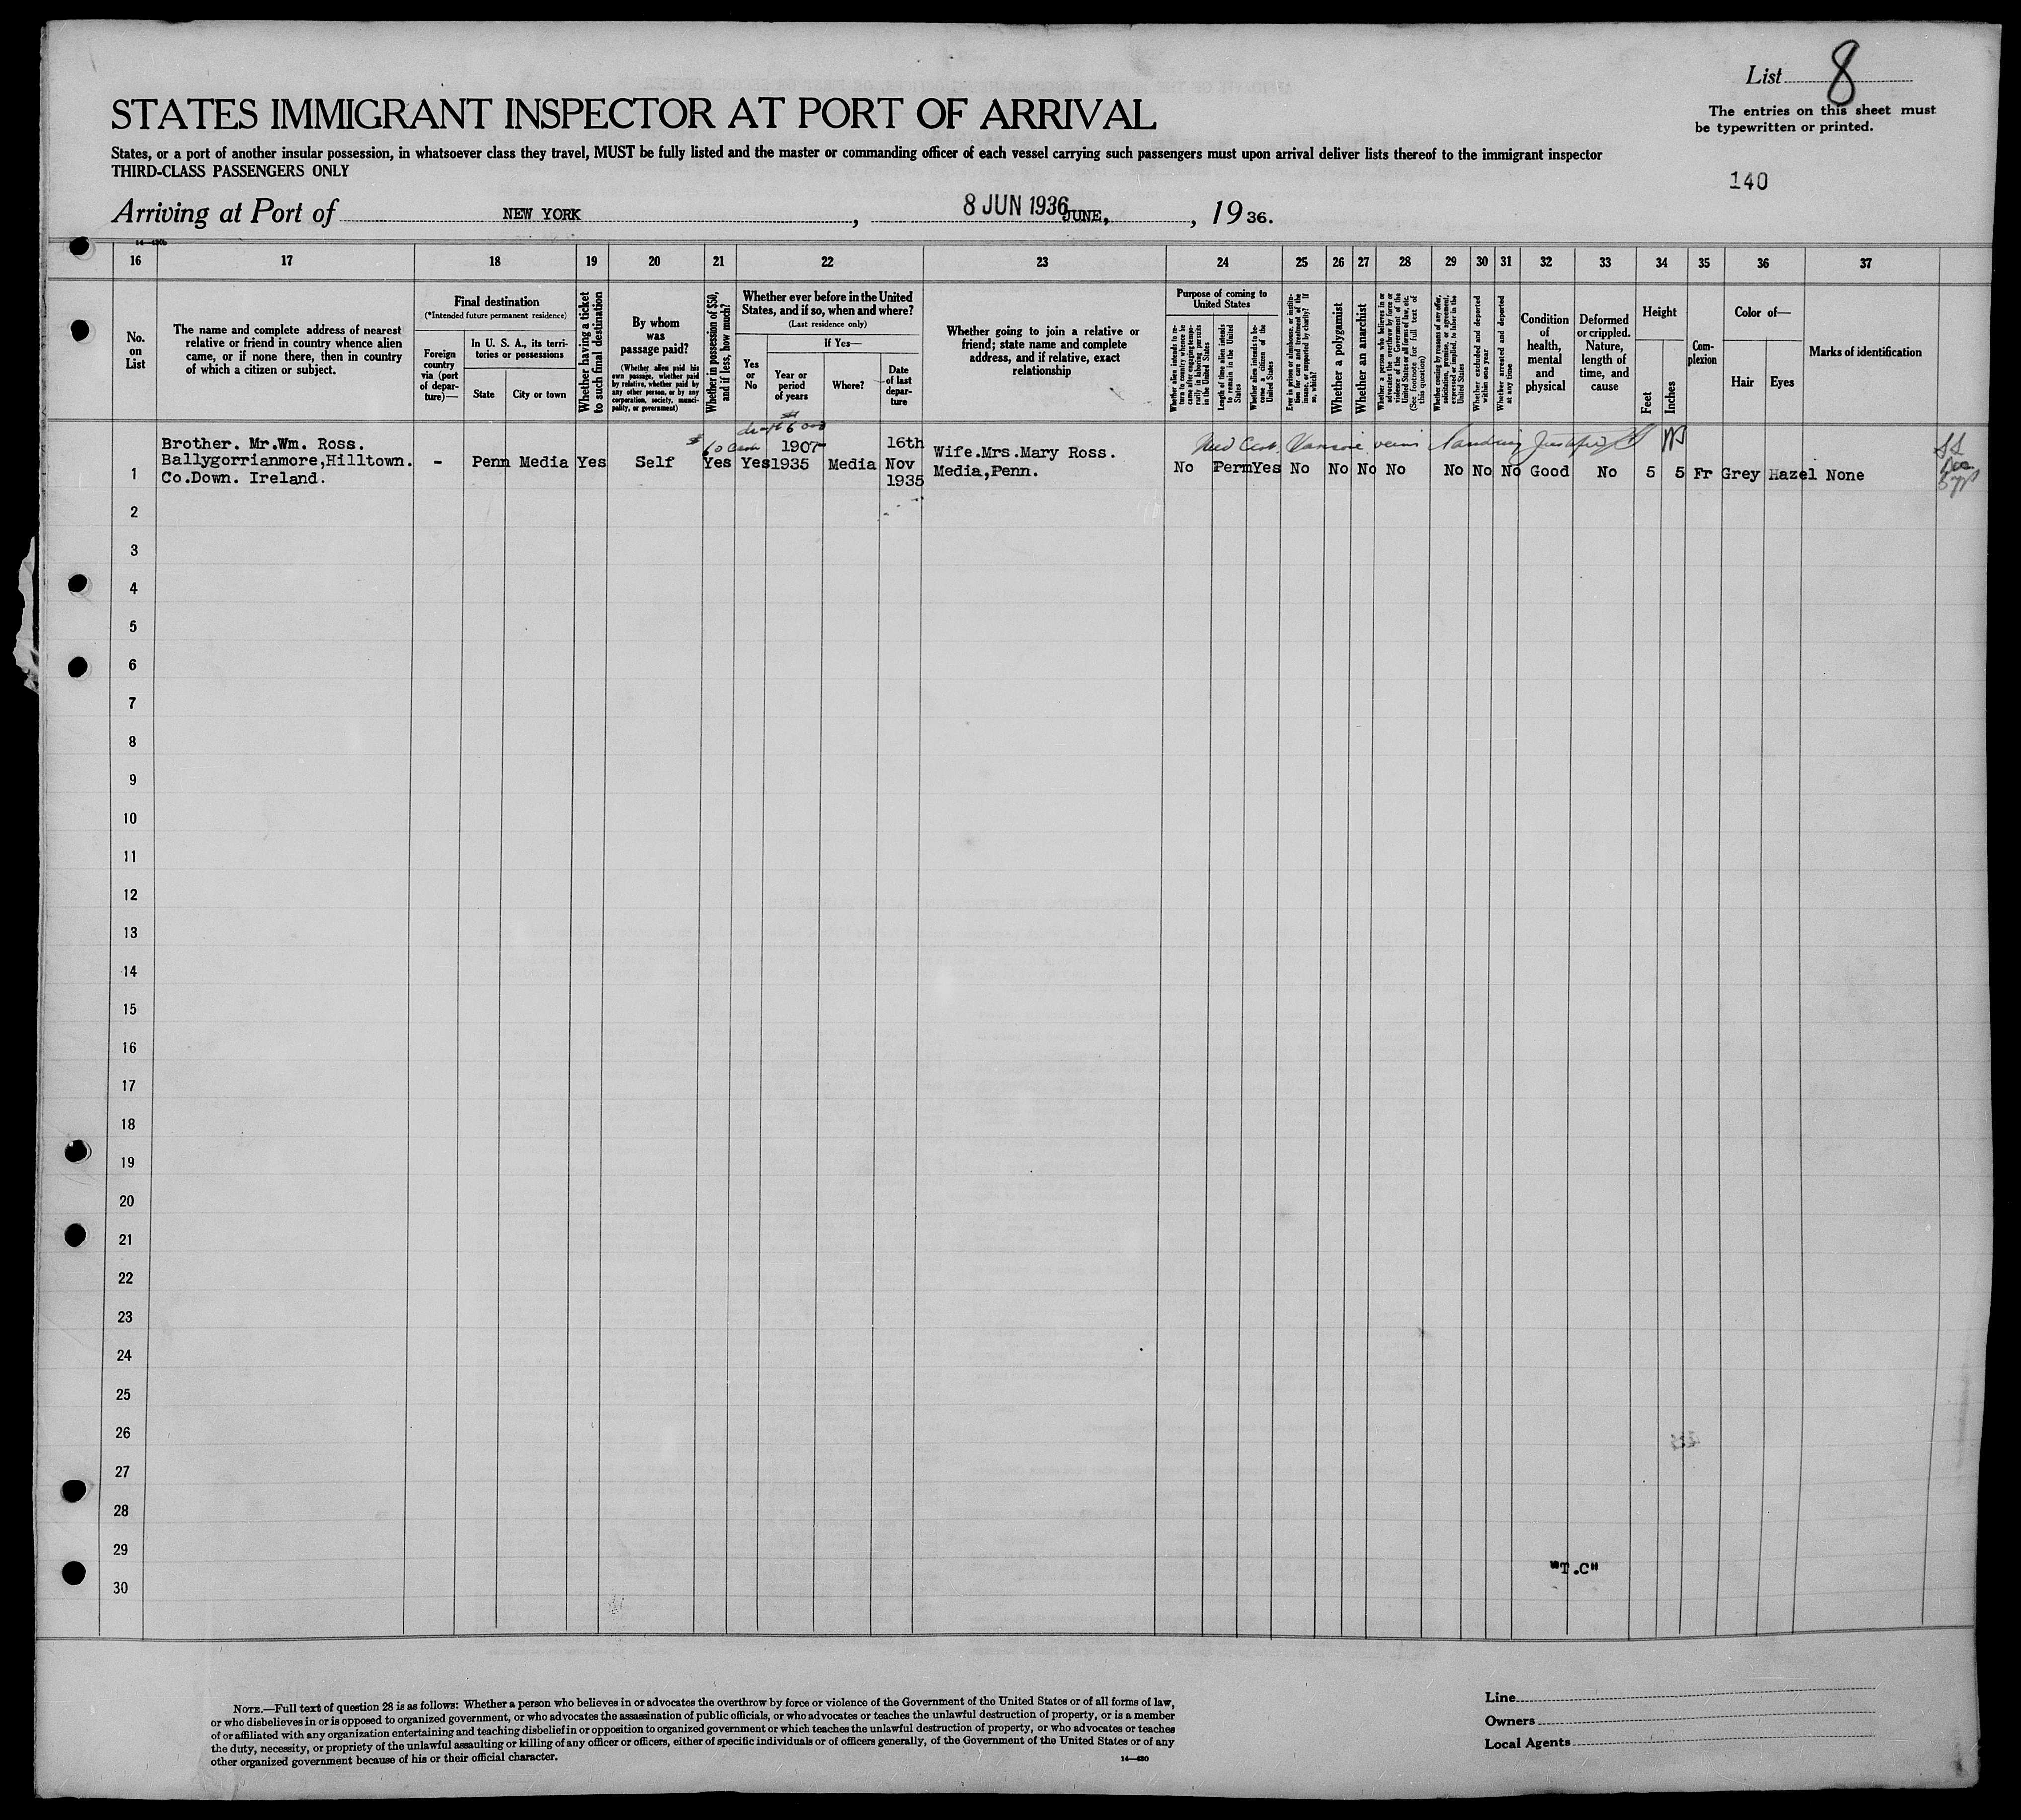 List 8
STATES IMMIGRANT INSPECTOR AT PORT OF ARRIVAL
The entries on this sheet must
be typewritten or printed.
States, or a port of another insular possession, in whatsoever class they travel, MUST be fully listed and the master or commanding officer of each vessel carrying such passengers must upon arrival deliver lists thereof to the immigrant inspector
THIRD-CLASS PASSENGERS ONLY
140
Arriving at Port of NEW YORK, 8 JUN 1936 JUNE, , 1936.
16 17 18 19 20 21 22 23 24 25 26 27 28 29 30 31 32 33 34 35 36 37
No. on List
The name and complete address of nearest relative or friend in country whence alien came, or if none there, then in country of which a citizen or subject.
Final destination
(*Intended future permanent residence)
Foreign country via (port of departure)—
In U. S. A., its territories or possessions
State
City or town
Whether having a ticket to such final destination
By whom was passage paid?
(Whether alien paid his own passage, whether paid by relative, whether paid by any other person, or by any corporation, society, municipality, or government)
Whether in possession of $50, and if less, how much?
Whether ever before in the United States, and if so, when and where?
(Last residence only)
Yes or No
If Yes—
Year or period of years
Where?
Date of last departure
Whether going to join a relative or friend; state name and complete address, and if relative, exact relationship
Purpose of coming to United States
Whether alien intends to return to country whence he came after engaging temporarily in laboring pursuits in the United States
Length of time alien intends to remain in the United States
Whether alien intends to become a citizen of the United States
Ever in prison or almshouse, or institution for care and treatment of the insane, or supported by charity? If so, which?
Whether a polygamist
Whether an anarchist
Whether a person who believes in or advocates the overthrow by force or violence of the Government of the United States or all forms of law, etc. (See footnote for full text of this question)
Whether coming by reasons of any offer, solicitation, promise, or agreement, expressed or implied, to labor in the United States
Whether excluded and deported within one year
Whether arrested and deported at any time
Condition of health, mental and physical
Deformed or crippled. Nature, length of time, and cause
Height
Feet
Inches
Complexion
Color of—
Hair
Eyes
Marks of identification
$60 Cash
Med Cert. Varicose veins Landing Justified
1 Brother. Mr.Wm. Ross. Ballygorrianmore,Hilltown. Co.Down. Ireland. - Penn Media Yes Self Yes Yes 1907 1935 Media 16th Nov 1935 Wife.Mrs.Mary Ross. Media,Penn. No Perm Yes No No No No No No No Good No 5 5 Fr Grey Hazel None
2
3
4
5
6
7
8
9
10
11
12
13
14
15
16
17
18
19
20
21
22
23
24
25
26
27
28
29
"T.C"
30
NOTE.—Full text of question 28 is as follows: Whether a person who believes in or advocates the overthrow by force or violence of the Government of the United States or of all forms of law,
or who disbelieves in or is opposed to organized government, or who advocates the assassination of public officials, or who advocates or teaches the unlawful destruction of property, or is a member
of or affiliated with any organization entertaining and teaching disbelief in or opposition to organized government or which teaches the unlawful destruction of property, or who advocates or teaches
the duty, necessity, or propriety of the unlawful assaulting or killing of any officer or officers, either of specific individuals or of officers generally, of the Government of the United States or of any
other organized government because of his or their official character.
14—430
Line
Owners
Local Agents